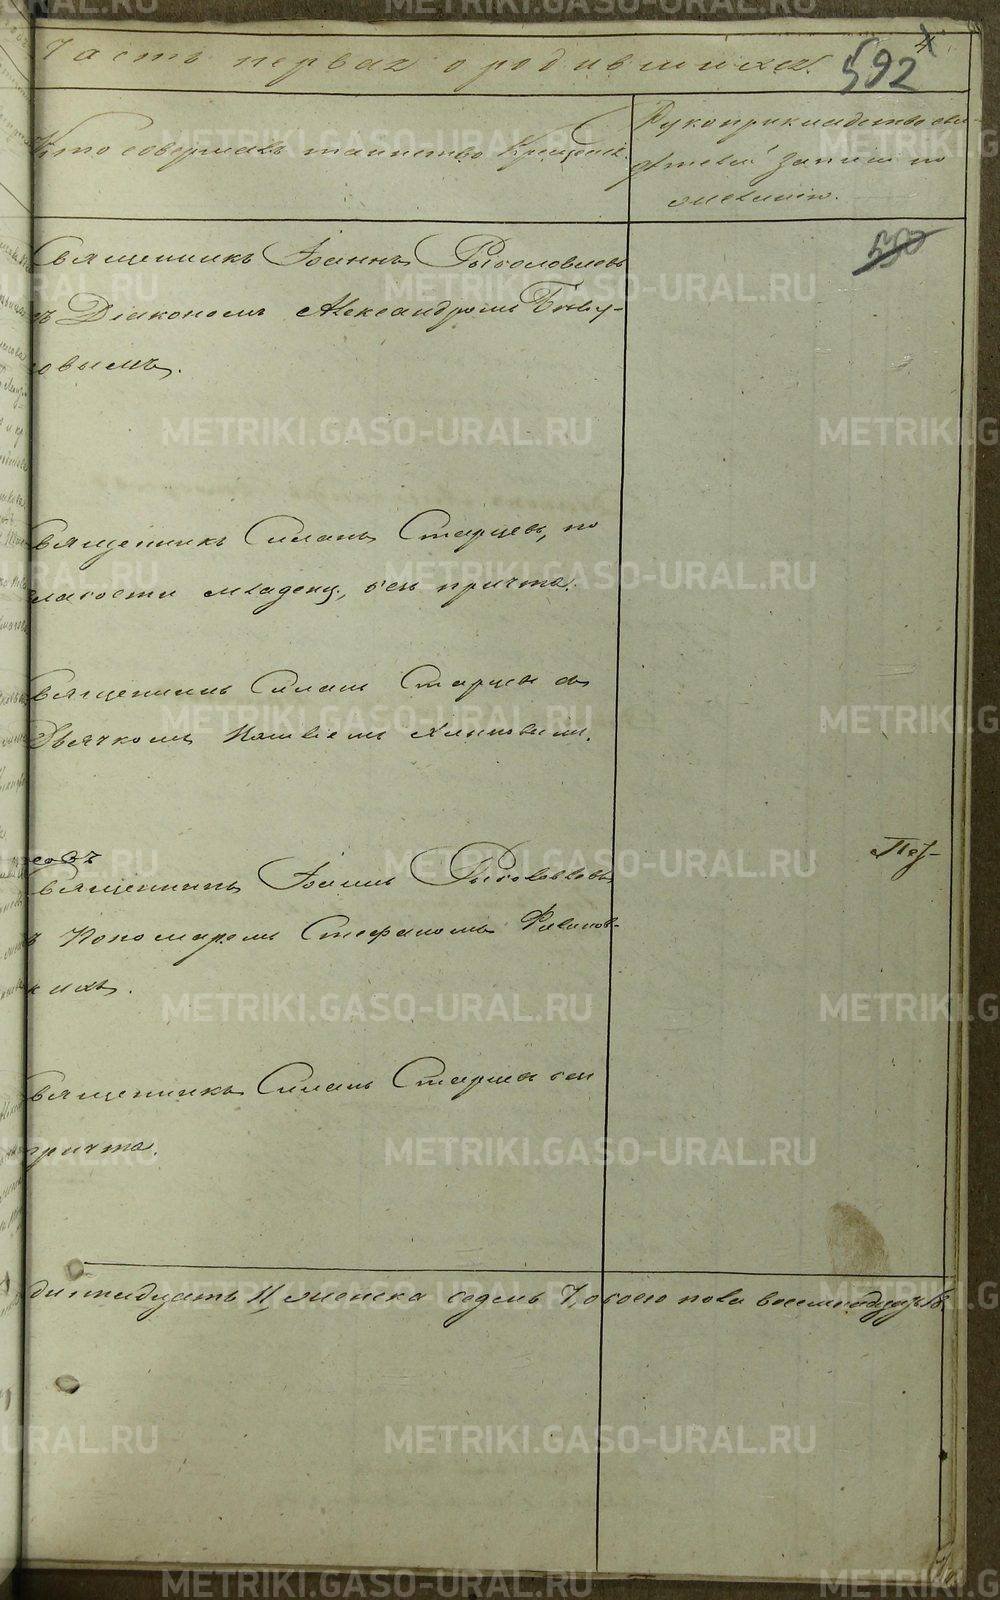 Часть первая о родившихся.
592
4
Кто совершалъ таинство Крещенія.
Рукоприкладство сви-
дѣтелей записи по
желанію.
Священникъ Іоаннъ Рыболовлевъ
590
съ Діакономъ Александромъ
овымъ.
Священникъ Силанъ Старцевъ, по
слабости младенц., безъ причта.
Священникъ Силанъ Старцевъ съ
Дьячкомъ
Священникъ Іоаннъ
съ Пономаремъ Стефаномъ
кихъ.
Священникъ Силанъ Старцевъ безъ
причта.
динадцать 11, женска седмь 7, обоего пола восемнадцать 18.
METRIKI.GASO-URAL.RU